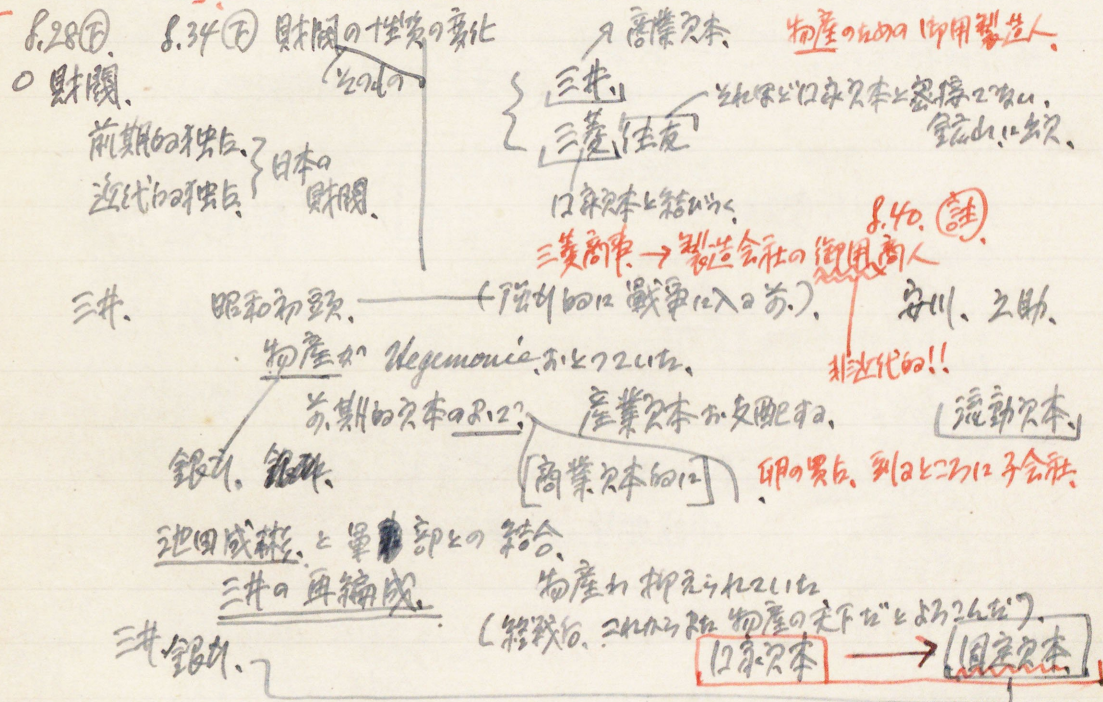 P.28㊦. P.34㊦ 財閥の性質の変化
(そのもの
○ 財閥.
前期的独占.
近代的独占.
日本の
財閥.
商業資本. 物産のための御用製造人.
三井. それほど口家資本と密接でない.
三菱 住友 鉱山に出次.
口家資本と結びつく
P.40. 註
三菱商事. → 製造会社の御用商人
三井. 昭和初頭. (強制的に戦争に入る前.) 安川、之助.
非近代的!!
物産が Hegemonie おとっていた.
前期的資本のように 産業資本お支配する. 流動資本.
銀行、 [商業資本的に] 卵の買占、到るところに子会社.
池田成彬. と軍部との結合.
三井の再編成. 物産わ抑えられていた
(終戦后、これからまた物産の天下だとよろこんだ).
三井銀行. 口家資本 → 固定資本